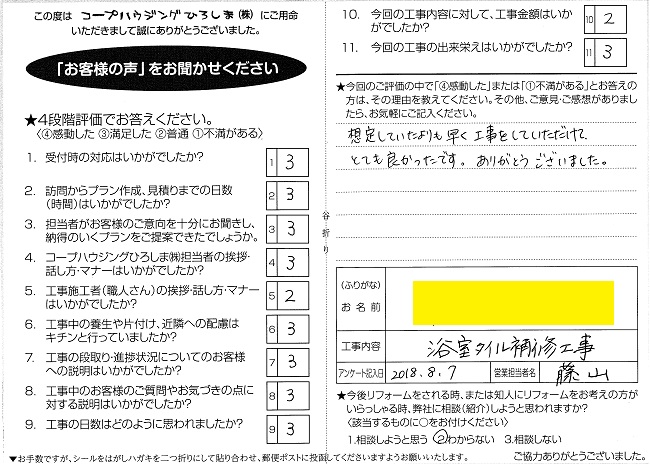 この度は コープハウジングひろしま(株) にご用命
いただきまして誠にありがとうございました。
「お客様の声」をお聞かせください
★4段階評価でお答えください。
〈④感動した ③満足した ②普通 ①不満がある〉
1. 受付時の対応はいかがでしたか?
1 3
2. 訪問からプラン作成、見積りまでの日数
(時間)はいかがでしたか?
2 3
3. 担当者がお客様のご意向を十分にお聞きし、
納得のいくプランをご提案できたでしょうか。
3 3
4. コープハウジングひろしま㈱担当者の挨拶・
話し方・マナーはいかがでしたか?
4 3
5. 工事施工者(職人さん)の挨拶・話し方・マナー
はいかがでしたか?
5 2
6. 工事中の養生や片付け、近隣への配慮は
キチンと行っていましたか?
6 3
7. 工事の段取り・進捗状況についてのお客様
への説明はいかがでしたか?
7 3
8. 工事中のお客様のご質問やお気づきの点に
対する説明はいかがでしたか?
8 3
9. 工事の日数はどのように思われましたか?
9 3
▼お手数ですが、シールをはがしハガキを二つ折りにして貼り合わせ、郵便ポストに投函してくださいますようお願いいたします。
谷折り
10. 今回の工事内容に対して、工事金額はいか
がでしたか?
10 2
11. 今回の工事の出来栄えはいかがでしたか?
11 3
★今回のご評価の中で「④感動した」または「①不満がある」とお答えの
方は、その理由を教えてください。その他、ご意見・ご感想がありまし
たら、お気軽にご記入ください。
想定していたよりも早く工事をしていただけて
とても良かったです。ありがとうございました。
(ふりがな)
お名前
工事内容 浴室タイル補修工事
アンケート記入日 2018.8.7 営業担当者名 藤山
★今後リフォームをされる時、または知人にリフォームをお考えの方が
いらっしゃる時、弊社に相談(紹介)しようと思われますか?
〈該当するものに○をお付けください〉
1.相談しようと思う ②わからない 3.相談しない
ご協力ありがとうございました。